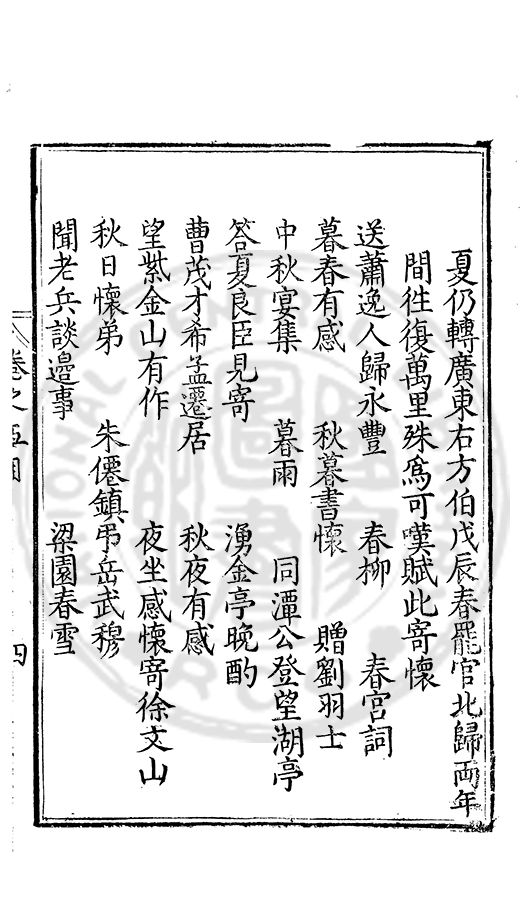 夏仍轉廣東右方伯戊辰春罷官北歸兩年
間往復萬里殊爲可嘆賦此寄懷
送蕭逸人歸永豐　春柳　春宮詞
暮春有感　秋暮書懷　贈劉羽士
中秋宴集　暮雨　同潭公登望湖亭
答夏良臣見寄　湧金亭晚酌
曹茂才希孟遷居　秋夜有感
望紫金山有作　夜坐感懷寄徐文山
秋日懷弟　朱僊鎮弔岳武穆
聞老兵談邊事　梁園春雪
卷之五目　四